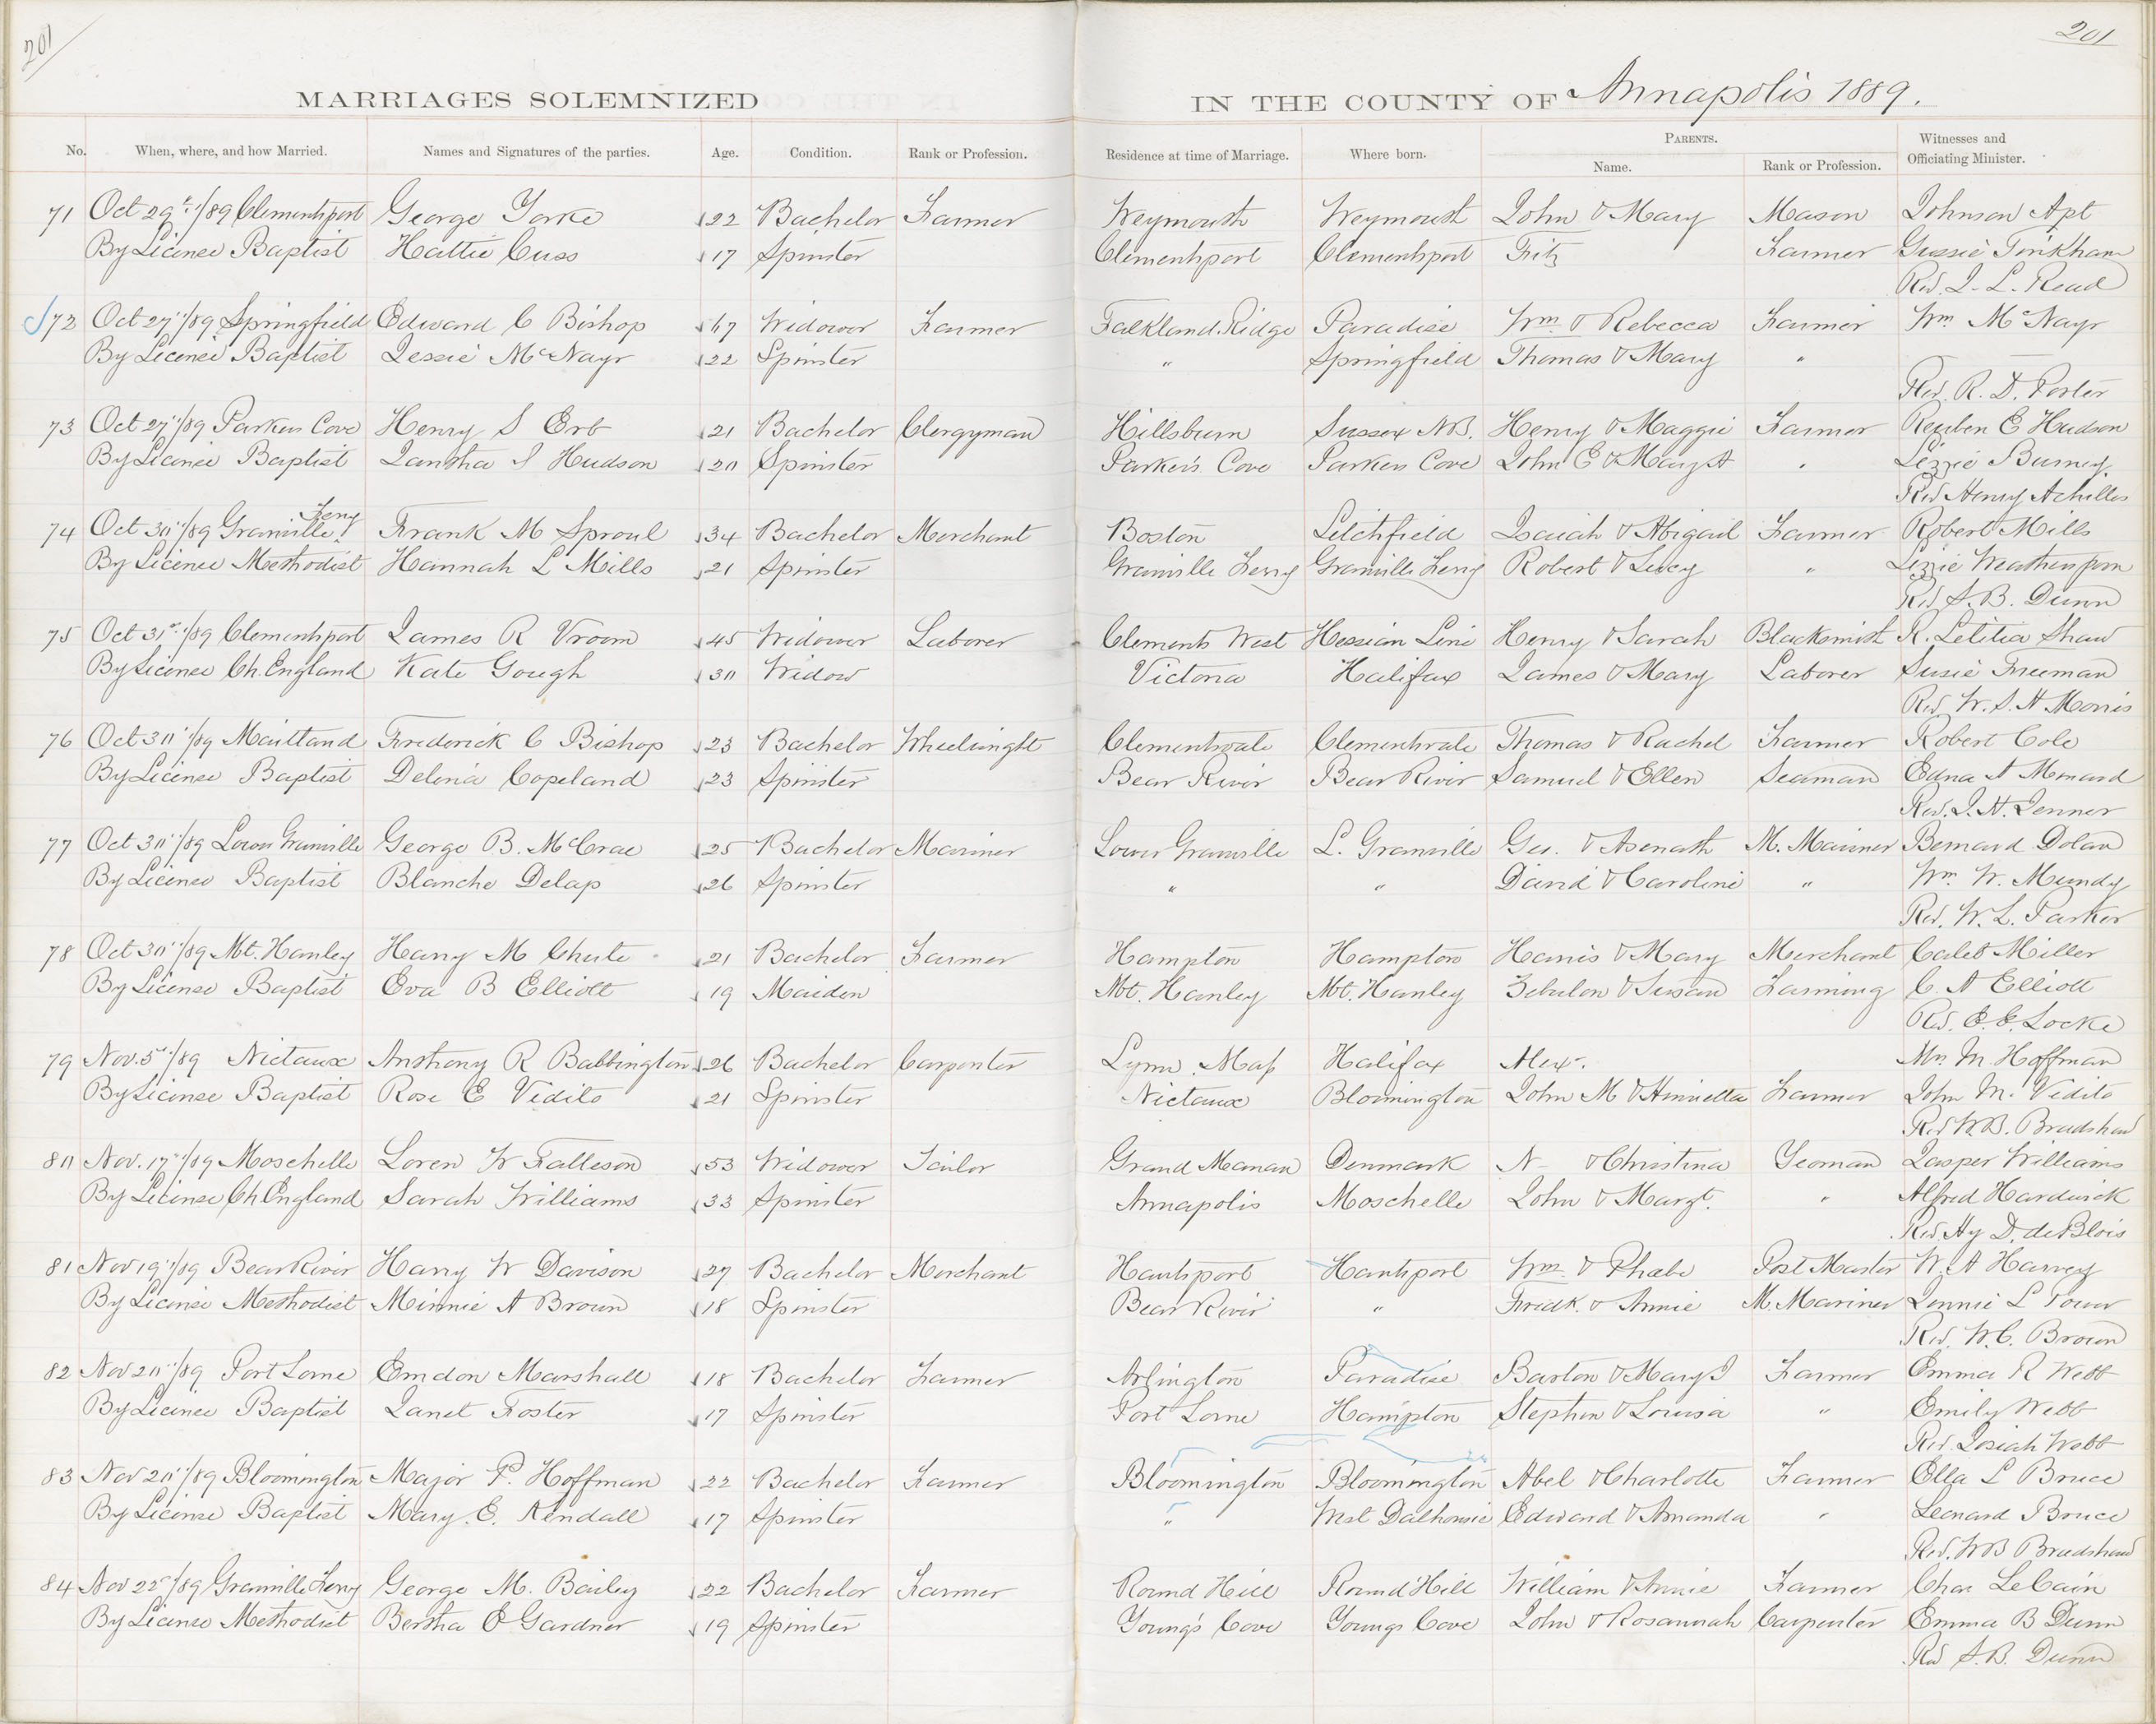 201
201
MARRIAGES SOLEMNIZED IN THE COUNTY OF Annapolis 1889.
No. When, where, and how Married. Names and Signatures of the parties. Age. Condition. Rank or Profession. Residence at time of Marriage. Where born. PARENTS. Name. Rank or Profession. Witnesses and Officiating Minister.
71 Oct 29th/89 Clementsport George Yorke 22 Bachelor Farmer Weymouth Weymouth John & Mary Mason Johnson Apt
By License Baptist Hattie Cuss 17 Spinster Clementsport Clementsport Fritz Farmer Gussie Tinkham
Rev. J. L. Read
72 Oct 27"/89 Springfield Edward C Bishop 47 Widower Farmer Falkland Ridge Paradise Wm & Rebecca Farmer Wm McNayr
By License Baptist Jessie McNayr 22 Spinster " Springfield Thomas & Mary "
Rev. R. D. Porter
73 Oct 27"/89 Parkers Cove Henry S Erb 21 Bachelor Clergyman Hillsburn Sussex N.B. Henry & Maggie Farmer Reuben E Hudson
By License Baptist Hudson 20 Spinster Parker's Cove Parkers Cove John E & Mary A " Lizzie Burney
Rev Henry Achilles
74 Oct 30"/89 Granville Ferry Frank M Sproul 34 Bachelor Merchant Boston Litchfield Isaiah & Abigail Farmer Robert Mills
By License Methodist Hannah L Mills 21 Spinster Granville Ferry Granville Ferry Robert & Lucy " Lizzie Weatherspoon
Rev S. B. Dunn
75 Oct 31st/89 Clementsport James R Vroom 45 Widower Laborer Clements West Hessian Line Henry & Sarah Blacksmith R. Letitia Shaw
By License Ch. England Kate Gough 30 Widow Victoria Halifax James & Mary Laborer Susie Freeman
Rev. W. S. H Morris
76 Oct 30"/89 Maitland Frederick C Bishop 23 Bachelor Wheelwright Clementsvale Clementsvale Thomas & Rachel Farmer Robert Cole
By License Baptist Deloria Copeland 23 Spinster Bear River Bear River Samuel & Ellen Seaman Edna A
Rev. J. H. Jenner
77 Oct 30"/89 Lower Granville George B. McCrae 25 Bachelor Mariner Lower Granville L. Granville Geo. & Asenath M. Mariner Bernard Dolan
By License Baptist Blanche Delap 26 Spinster " " David & Caroline " Wm. W. Mundy
Rev. W. L. Parker
78 Oct 30"/89 Mt. Hanley Harry M Chute 21 Bachelor Farmer Hampton Hampton Harris & Mary Merchant Caleb Miller
By License Baptist Eva B Elliott 19 Maiden Mt. Hanley Mt. Hanley Zebulon & Susan Farming C. A Elliott
Rev. E. E. Locke
79 Nov. 5th/89 Nictaux Anthony R Babbington 26 Bachelor Carpenter Lynn, Mass Halifax Alex. Mrs. M Hoffman
By License Baptist Rose E Vidito 21 Spinster Nictaux Bloomington John M & Henrietta Farmer John M. Vidito
Rev W.B. Bradshaw
80 Nov. 17"/89 Moschelle Loren W Falleson 53 Widower Tailor Grand Manan Denmark N- & Christina Yeoman Jasper Williams
By License Ch England Sarah Williams 33 Spinster Annapolis Moschelle John & Margt. " Alfred Hardwick
Rev. Hy D. deBlois
81 Nov 19"/89 Bear River Harry W Davison 27 Bachelor Merchant Hantsport Hantsport Wm. & Phoebe Post Master W. A Harvey
By License Methodist Minnie A Brown 18 Spinster Bear River " Fredk. & Annie M. Mariner Jennie L Tower
Rev. W.C. Brown
82 Nov 20"/89 Port Lorne Emdon Marshall 18 Bachelor Farmer Arlington Paradise Barton & Mary J Farmer Emma R Webb
By License Baptist Janet Foster 17 Spinster Port Lorne Hampton Stephen & Louisa " Emily Webb
Rev. Josiah Webb
83 Nov 20"/89 Bloomington Major P. Hoffman 22 Bachelor Farmer Bloomington Bloomington Abel & Charlotte Farmer Ella L Bruce
By License Baptist Mary. E. Kendall 17 Spinster " West Dalhousie Edward & Amanda " Leonard Bruce
Rev. W B Bradshaw
84 Nov 22"/89 Granville Ferry George M. Bailey 22 Bachelor Farmer Round Hill Round Hill William & Annie Farmer Chas LeCain
By License Methodist Bertha E Gardner 19 Spinster Young's Cove Youngs Cove John & Rosannah Carpenter Emma B Dunn
Rev S. B. Dunn